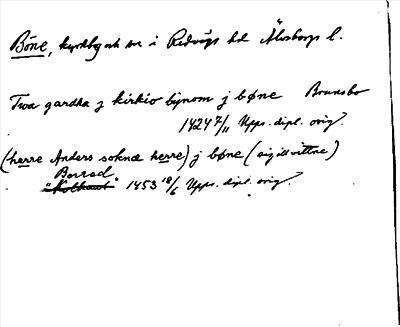 Böne, kyrkby och sn i Redvägs hd Älvsborgs l.
Twa gardha j kirkio bynom j bøne Brunsbo
1424 7/11 Upps. dipl. orig.
(herre Anders soknæ herre) j bøne (sigillvittne)
Borrad
"Kolhaut" 1453 18/6 Upps. dipl. orig.